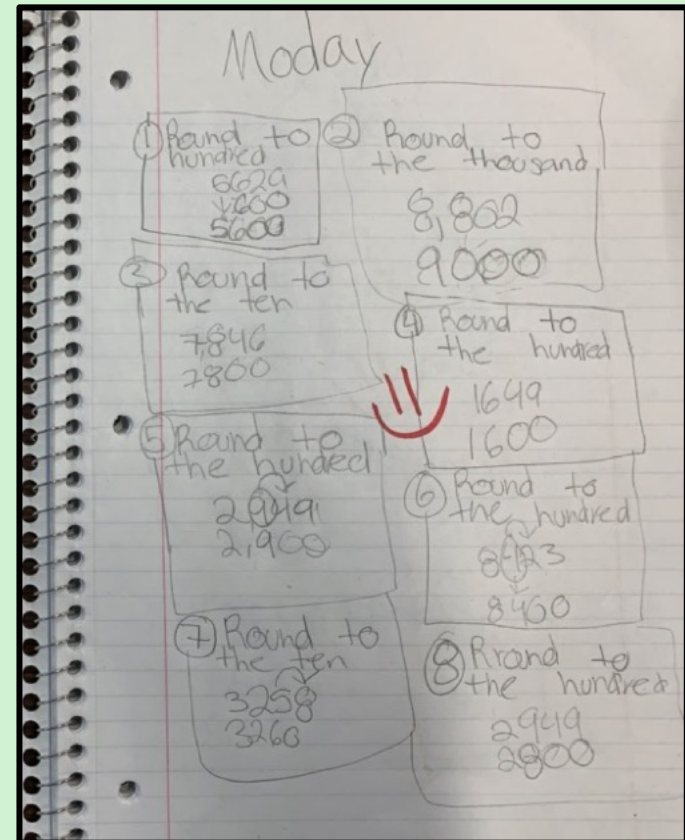 Moday
① Round to
hundred
5629
600
5600
② Round to
the thousand
8,802
9000
③ Round to
the ten
7,846
7800
④ Round to
the hundred
1649
1600
⑤ Round to
the hunded
2949
2,900
⑥ Round to
the hundred
8423
8400
⑦ Round to
the ten
3258
3260
⑧ Rround to
the hundred
2949